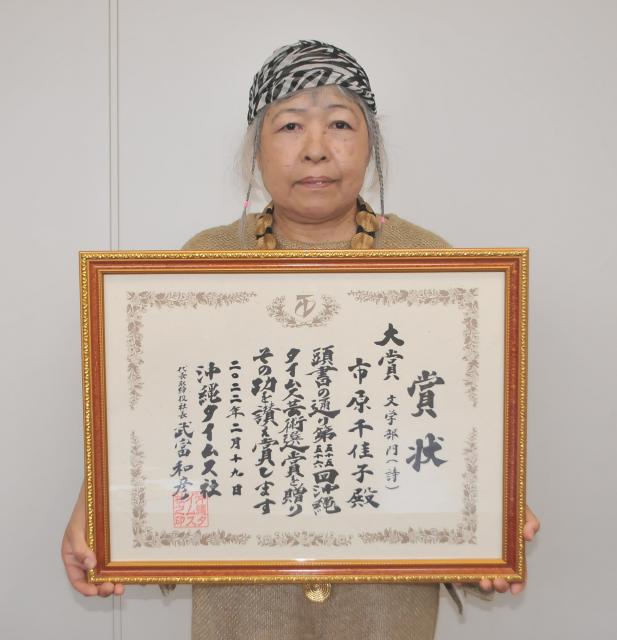 賞状
大賞 文学部門(詩)
市原千佳子殿
頭書の通り第五十五五十六回沖縄
タイムス芸術選賞を贈り
その功を讃え賞します
二〇二二年二月十九日
沖縄タイムス社
代表取締役社長 武富和彦
沖縄タイムス社之印